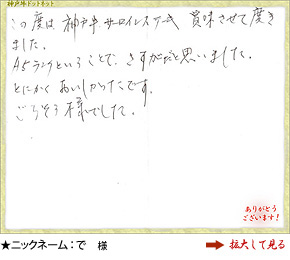 神戸牛ドットネット
この度は神戸牛サーロインステーキ 賞味させて頂き
ました。
A5ランクということで、さすがだと思いました。
とにかくおいしかったです。
ごちそう様でした。
ありがとう
ございます!
★ニックネーム:で 様
拡大して見る